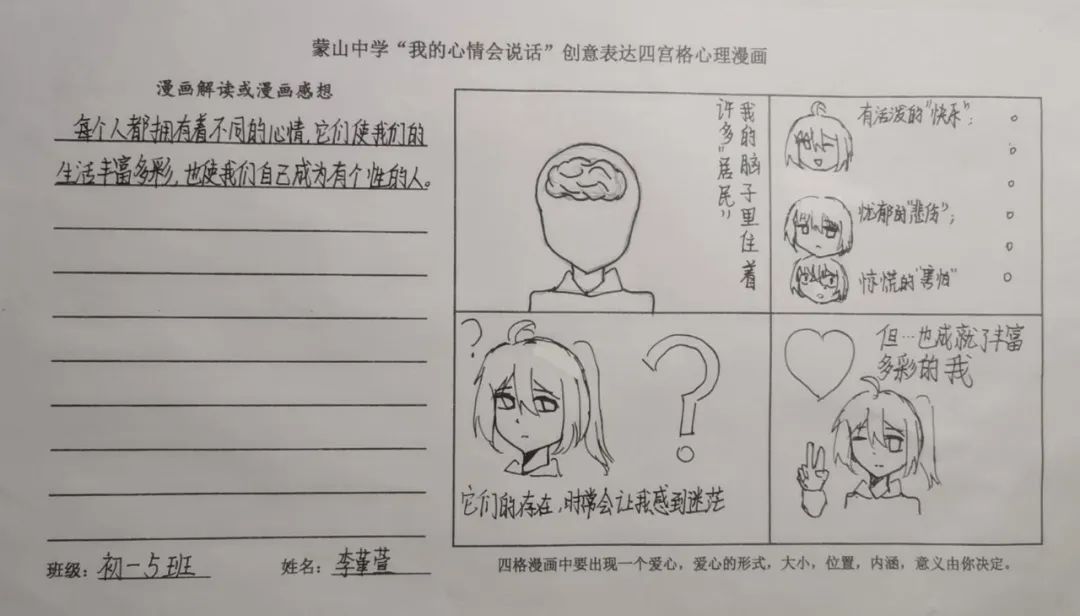 蒙山中学“我的心情会说话”创意表达四宫格心理漫画
漫画解读或漫画感想
每个人都拥有着不同的心情,它们使我们的
生活丰富多彩,也使我们自己成为有个性的人。
班级:初一5班
姓名:李堇萱
我的脑子里住着
许多“居民”
有活泼的“快乐”;
忧郁的“悲伤”;
惊慌的“害怕”
?
?
它们的存在,时常会让我感到迷茫
但…也成就了丰富
多彩的我
四格漫画中要出现一个爱心,爱心的形式,大小,位置,内涵,意义由你决定。